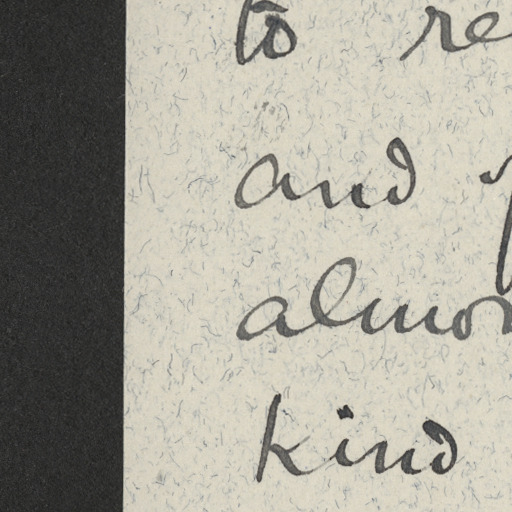 to re
and
almo
kind